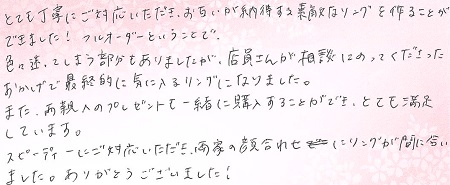 とても丁寧にご対応いただき、お互いが納得する素敵なリングを作ることが
できました！フルオーダーということで、
色々迷ってしまう部分もありましたが、店員さんが相談にのってくださった
おかげで最終的に気に入るリングになりました。
また、両親へのプレゼントも一緒に購入することができ、とても満足
しています。
スピーディーにご対応いただき、両家の顔合わせにリングが間に合い
ました。ありがとうございました！